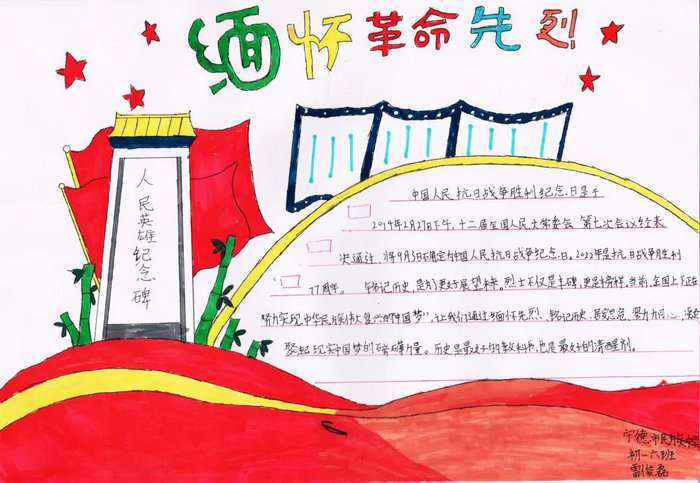 缅怀革命先烈
人民英雄纪念碑
中国人民抗日战争胜利纪念日是于
2014年2月27日下午,十二届全国人民大常委会 第七次会议经表
决通过,将9月3日确定为中国人民抗日战争纪念日。2022年是抗日战争胜利
77周年。 铭记历史,是为了更好展望未来。烈士不仅是丰碑,更是榜样。当前,全国上下正在
努力实现"中华民族伟大复兴的中国梦",让我们通过缅怀先烈、铭记历史、居安思危、努力
聚起实现中国梦的磅礴力量。历史是最好的教科书,也是最好的清醒剂。
宁德市民族
初一六班
雷俊磊